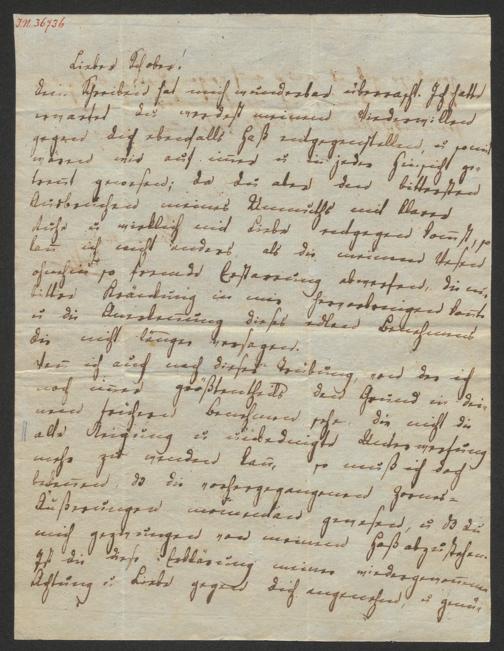 I.N. 36736
Lieber Schober!
Dein Schreiben hat mich wunderbar überrascht. Ich hatte
erwartet du werdest meinem Widerwillen
gegen dich ebenfalls Haß entgegenstellen, u somit
wären wir auf immer u in jeder Hinsicht ge-
trennt gewesen; da du aber den bittersten
Ausbrüchen meines Unmuths mit klarer
Ruhe u wirklich mit Liebe entgegen komst, so
kan ich nicht anders, als die meinem Wesen
ohnehin so fremde Erstarrung abwerfen, die
bittre Kränkung in mir
u die Anerkennung dieses edlen Benehmens
dir nicht länger versagen.
ich auch nach dieser Trübung, von der ich
noch immer größtentheils den Grund in dei-
nem frühern Benehmen sehe, dir nicht die
alte Neigung u unbedingte Unterwerfung
mehr zu wenden kan, so muß ich doch
bekennen, daß die vorhergegangenen Zornes-
Äußerungen momentan gewesen, u daß du
mich gezwungen von meinem Haß abzustehen.
die diese Erklärung meiner wiedergewonnenen
Achtung u Liebe gegen dich angenehm, u